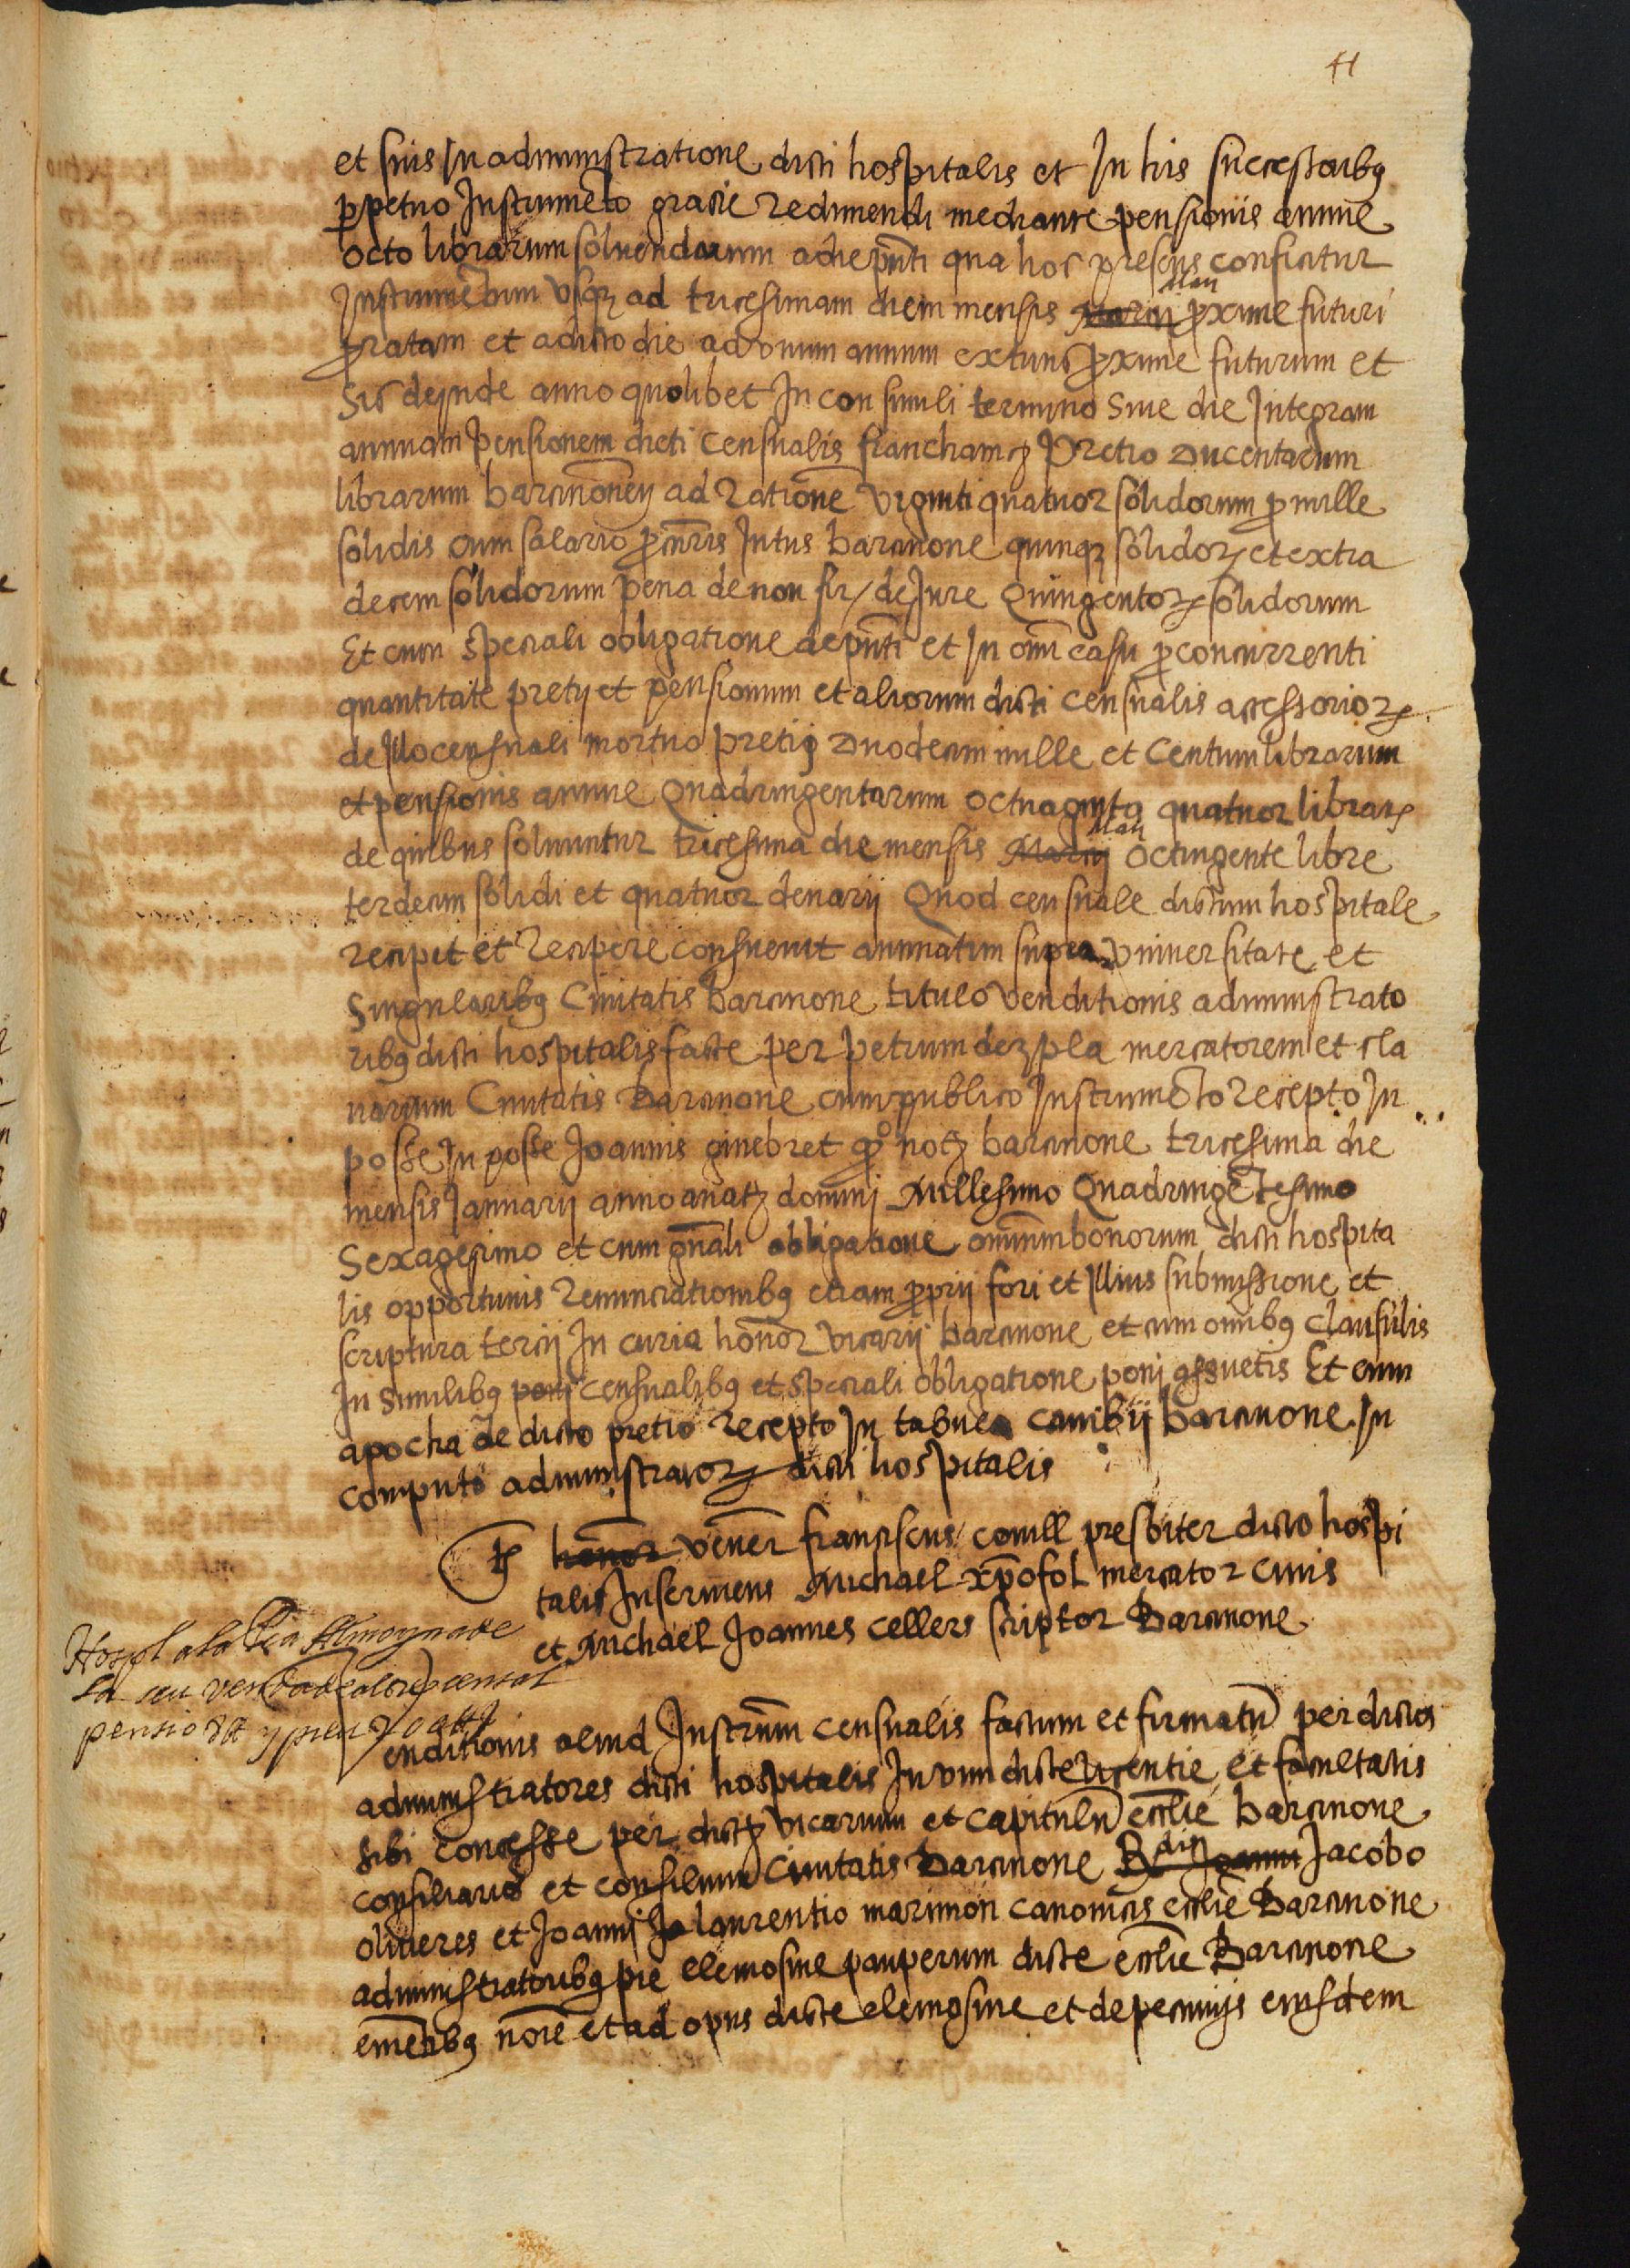 41
et suis In administratione dicti hospitalis et In his successoribꝫ
ꝑpetuo Instrumẽto gracie redimendi mediante pensionis annue
octo librarum soluendarum a die pñti qua hoc presens conficitur
Instrumẽtum vsqꝫ ad tricesimam diem mensis Marcij Maij ꝓxime futuri
ꝓratam et a dicto die ad vnum annum extunc ꝓxime futurum et
Sic dejnde anno quolibet In consimili termino Siue die Integram
annuam pensionem dicti censualis francham ꝫ Pretio Ducentarum
librarum barcinoneñ ad rationẽ viginti quatuor solidorum ꝓ mille
solidis cum salario ꝓcũris Intus barcinone quinqꝫ solidoꝝ et extra
decem solidorum pena de non fir/ de Jure Quingentoꝝ solidorum
Et cum speciali obligatione de pñti et In oñi casu ꝓ concurrenti
quantitate pretij et pensionum et aliorum dicti censualis accessorioꝝ
de Illo censuali mortuo pretij Duodecim mille et Centum librarum
et pensionis annue Quadringentarum octuaginta quatuor libraꝝ
de quibus soluuntur tricesima die mensis Marcij Maij octingente libre
terdecim solidi et quatuor denarij Quod censuale dictum hospitale
recipit et recipere consueuit annuatim super vniuersitate et
Singularibꝫ Ciuitatis barcinone titulo venditionis administrato
ribꝫ dicti hospitalis facte per petrum dezpla mercatorem et cla
uarium Ciuitatis Barcinone cum publico Instrumẽto recepto In
posse In posse Joannis ginebret ꝙ° notꝫ barcinone tricesima die
mensis Januarij anno a natꝫ dominj Millesimo Quadringẽtesimo
Sexagesimo et cum gñali obligatione omnium bonorum dicti hospita
lis opportunis renunciationibꝫ etiam ꝓprij fori et Illius submissione et
scriptura tercij In curia honoꝛ vicarij barcinone et cum omibꝫ clausulis
In similibꝫ ponj censualibꝫ et speciali obligatione ponj assuetis Et cum
apocha de dicto pretio recepto In tabula cambij barcinone In
computo administratoꝝ dicti hospitalis
Tꝭ honoꝛ veneꝛ franciscus conill presbiter dicto hospi
talis Inseruiens Michael xp̃ofol mercator ciuis
et Michael Joannes cellers scriptor Barcinone
Hospl a la Pia Almoyna de
La seu venda de altre censal
pensio 8 ₶ y preu 200 ₶
enditionis aliud Instrum̃ censualis factum et firmatũ per dictos
administratores dicti hospitalis In vim dicte licentie et facultatis
sibi concesse per dictꝫ vicarium et capitulũ eccl̃ie barcinone
consiliarios et consilium Ciuitatis Barcinone Rdis Joanni Jacobo
oliueres et Joannj Ja laurentio marimon canonicis eccl̃ie Barcinone
administratoribꝫ pie elemosine pauperum dicte eccl̃ie Barcinone
emẽtibꝫ nõie et ad opus dicte elemosine et de pecunijs eiusdem